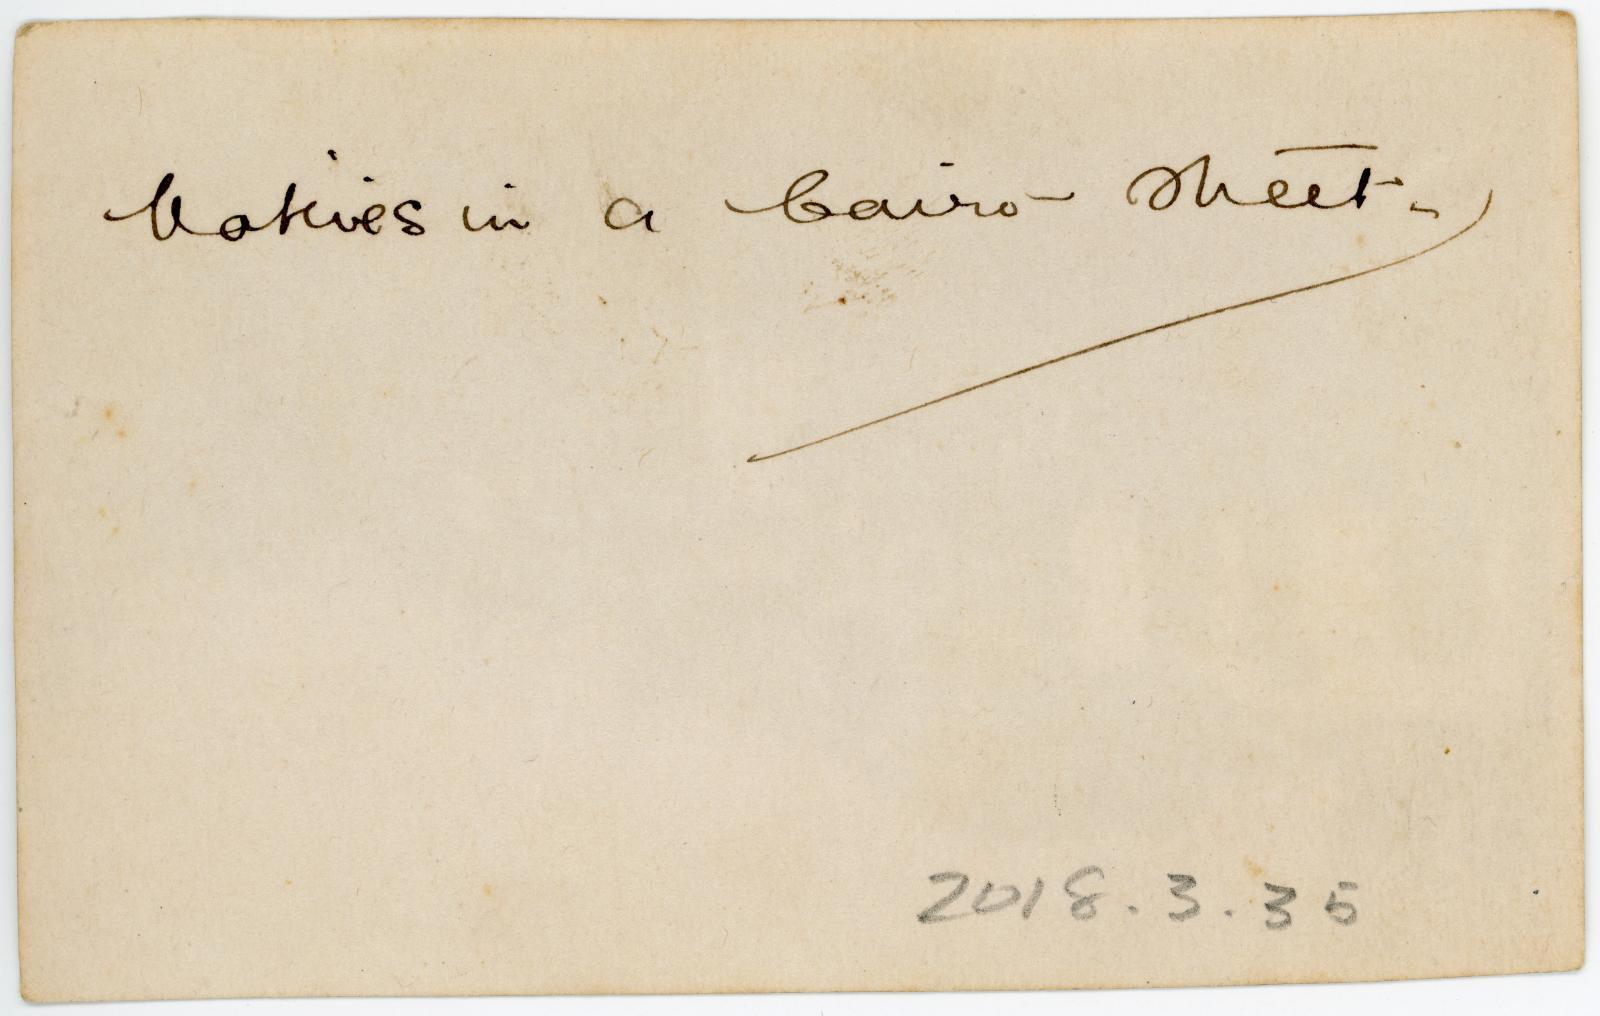 Natives in a Cairo Street.
2018.3.35